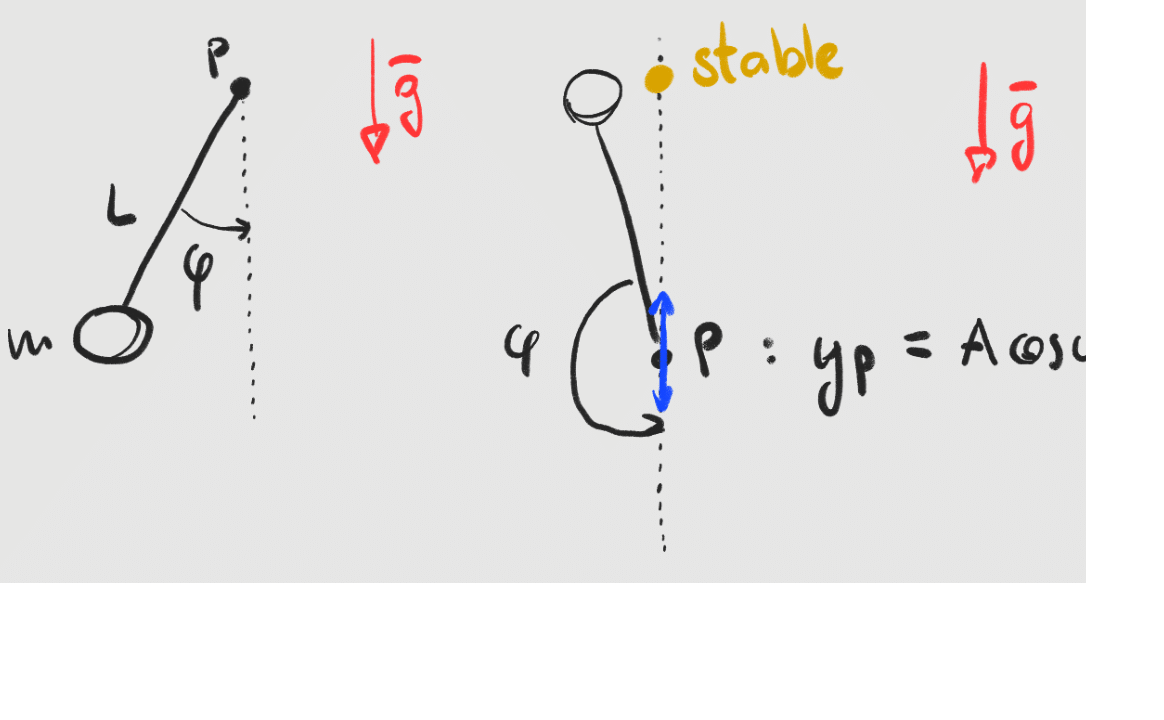 P
g̅
L
φ
m
stable
g̅
φ
P : yp = A cos